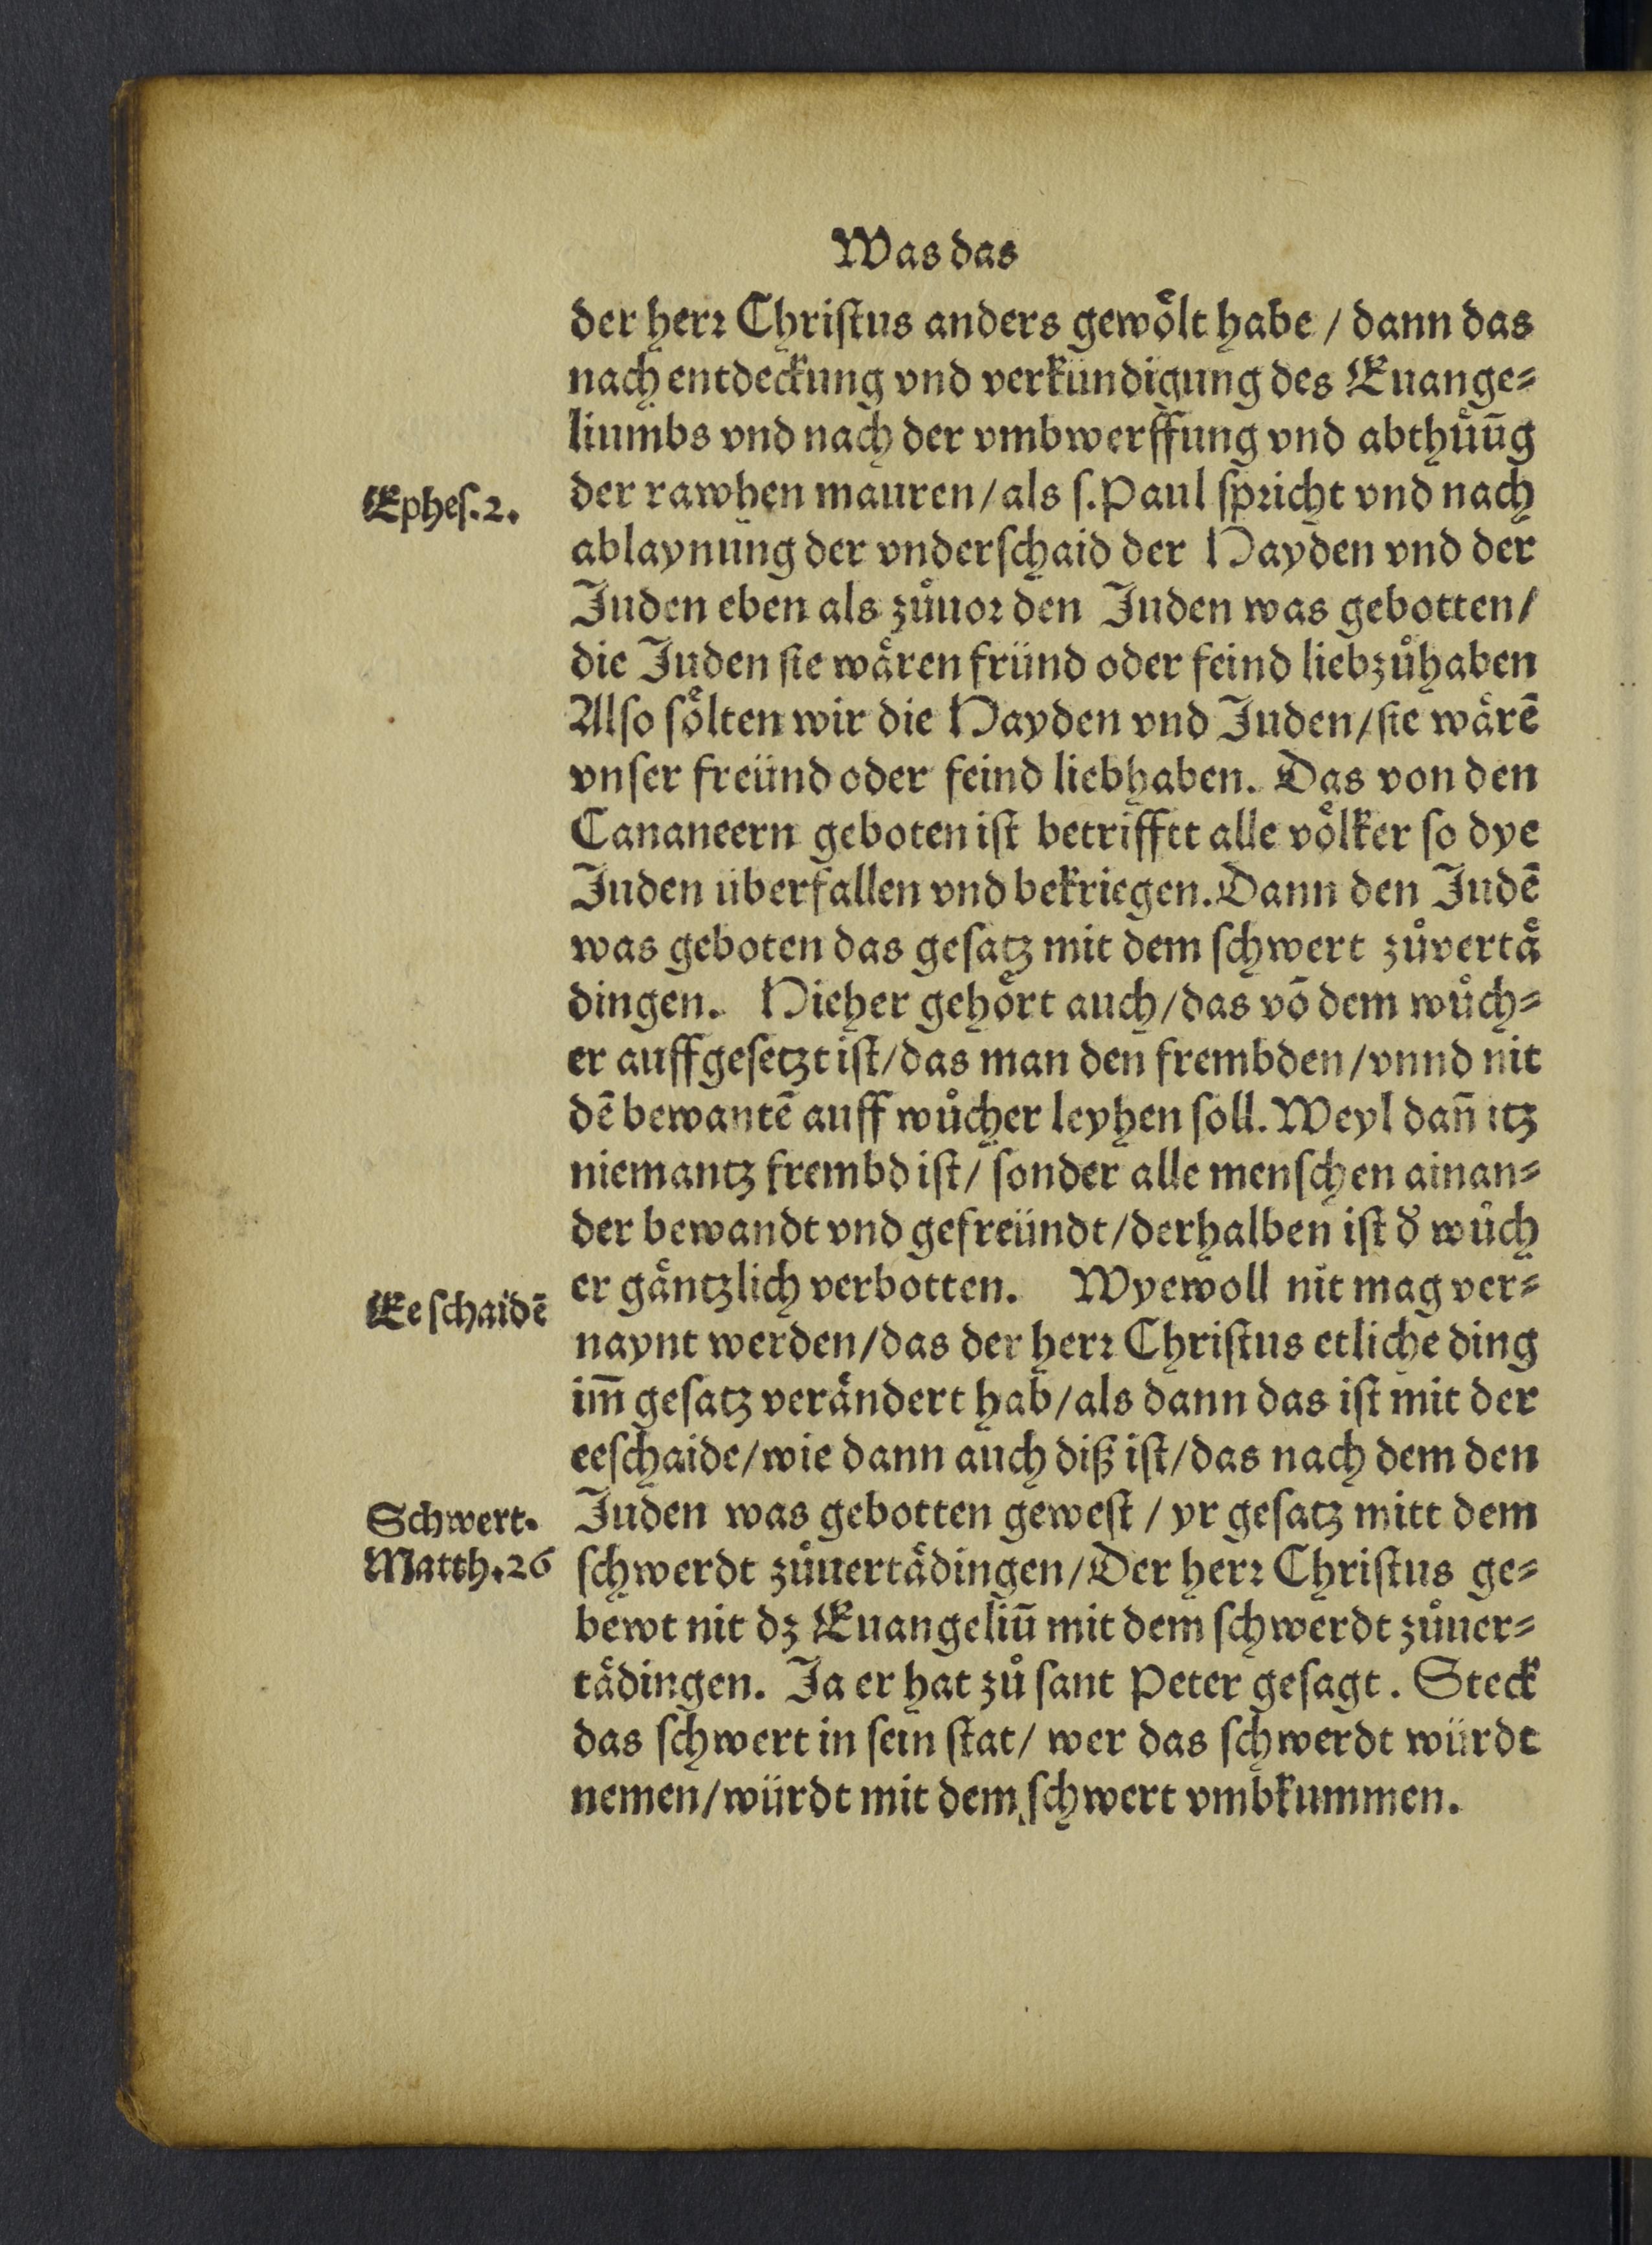 Was das
der herꝛ Chriſtus anders gewoͤlt habe / dann das
nach entdeckung vnd verkündigung des Euange⸗
liumbs vnd nach der vmbwerffung vnd abthuͤūg
Epheſ. 2. der rawhen mauren/als ſ. Paul ſpꝛicht vnd nach
ablaynung der vnderſchaid der Hayden vnd der
Juden eben als zuͦuoꝛ den Juden was gebotten/
die Juden ſie waͤren fründ oder feind liebzuͦhaben
Alſo ſoͤlten wir die Hayden vnd Juden/ſie waͤrē
vnſer freünd oder feind liebhaben. Das von den
Cananeern geboten iſt betrifftt alle voͤlker ſo dye
Juden überfallen vnd bekriegen. Dann den Judē
was geboten das geſatz mit dem ſchwert zuͦvertaͤ
dingen. Hieher gehoͤrt auch/das vō dem wuͦch⸗
er auffgeſetzt iſt/das man den frembden/vnnd nit
dē bewantē auff wuͦcher leyhen ſoll. Weyl dañ itz
niemantz frembd iſt/ ſonder alle menſchen ainan⸗
der bewandt vnd gefreündt/derhalben iſt d' wuͦch
Ee ſchaidē er gaͤntzlich verbotten. Wyewoll nit mag ver⸗
naynt werden/das der herꝛ Chriſtus etliche ding
im̄ geſatz veraͤndert hab/als dann das iſt mit der
eeſchaide/wie dann auch diß iſt/das nach dem den
Schwert. Juden was gebotten geweſt / yr geſatz mitt dem
Matth. 26 ſchwerdt zuͦuertaͤdingen/Der herꝛ Chriſtus ge⸗
bewt nit dz Euangeliū mit dem ſchwerdt zuͦuer⸗
taͤdingen. Ja er hat zuͦ ſant Peter geſagt. Steck
das ſchwert in ſein ſtat/ wer das ſchwerdt würdt
nemen/würdt mit dem ſchwert vmbkummen.